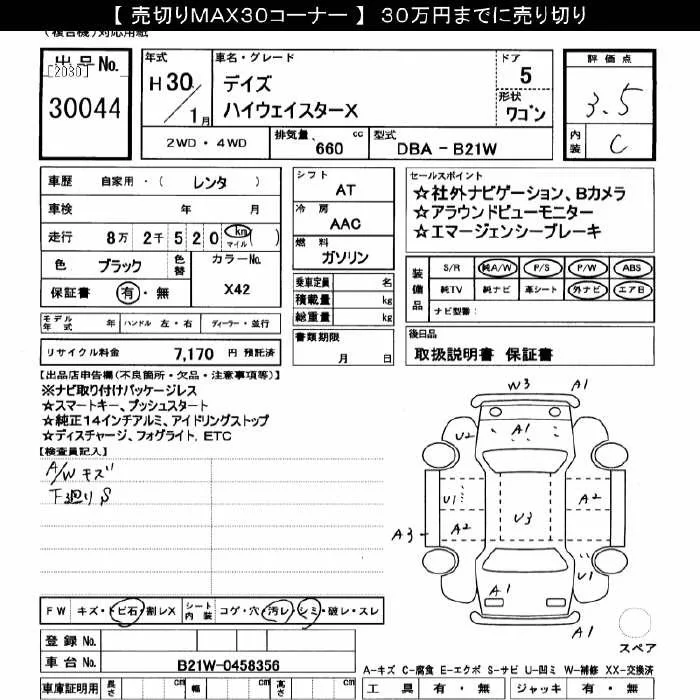 【 売切りMAX30コーナー 】 30万円までに売り切り
(複合機)対応用紙
出品No.
[2030]
30044
年式
H30/1月
車名・グレード
デイズ
ハイウェイスターX
ドア
5
形状
ワゴン
評価点
3.5
内装
C
2WD・4WD
排気量 660 cc
型式 DBA - B21W
車歴 自家用・( レンタ )
車検 年 月
走行 8万 2千 5 2 0 km マイル ( )
色 ブラック 色替
カラーNo.
X42
保証書 有・無
シフト
AT
冷房
AAC
燃料
ガソリン
乗車定員 名
積載量 kg
総重量 kg
セールスポイント
☆社外ナビゲーション、Bカメラ
☆アラウンドビューモニター
☆エマージェンシーブレーキ
装備品
S/R 純A/W P/S P/W ABS
純TV 純ナビ 革シート 外ナビ エアB
ナビ型番:
モデル年式 年 ハンドル 左・右 ディーラー・並行
書類期限
月 日
後日品
取扱説明書 保証書
リサイクル料金 7,170 円 預託済
【出品店申告欄(不良箇所・欠品・注意事項等)】
※ナビ取り付けパッケージレス
☆スマートキー、プッシュスタート
☆純正14インチアルミ、アイドリングストップ
☆ディスチャージ、フォグライト、ETC
【検査員記入】
A/W キズ
下廻り S
W3 A1
U2 A1
U1 A2
U3
A3 A2
U1
A1
A1
スペア
FW キズ・トビ石・割レX
シート内装 コゲ・穴・汚レ・シミ・破レ・スレ
登録No.
車台No. B21W-0458356
A-キズ C-腐食 E-エクボ S-サビ U-凹ミ W-補修 XX-交換済
車庫証明用 長さ cm 幅 cm 高さ cm
工具 有・無 ジャッキ 有・無